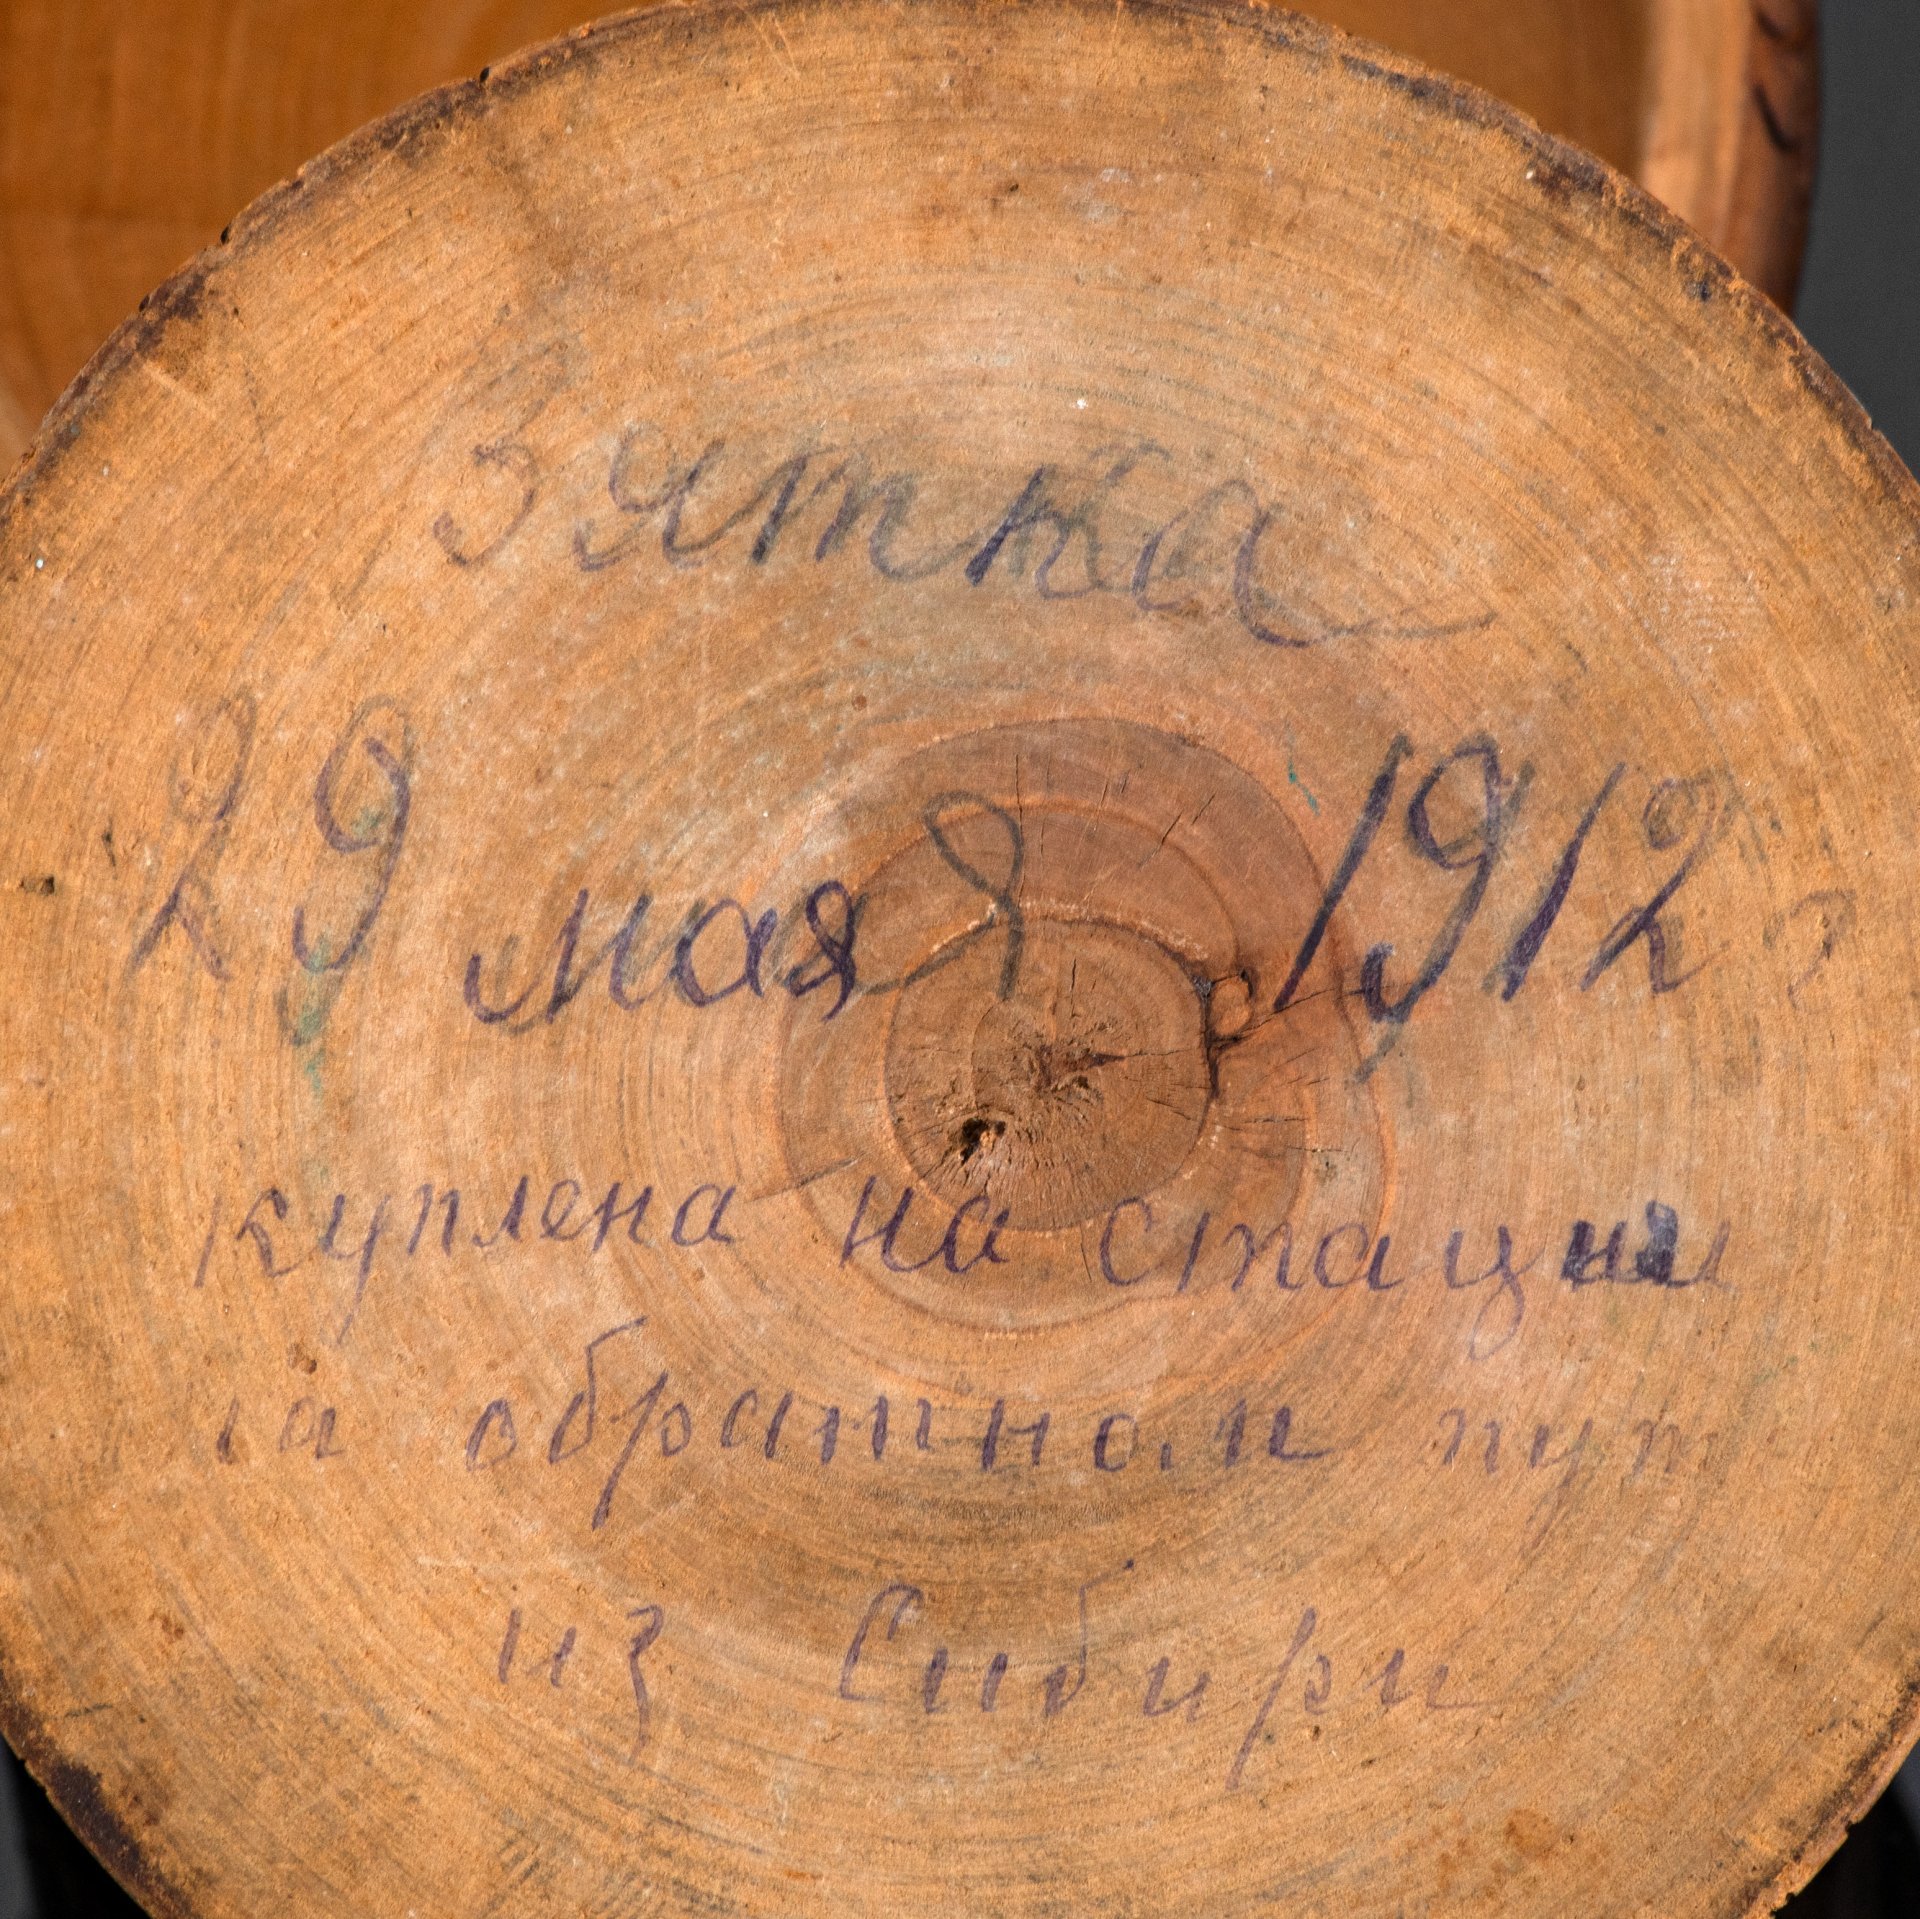 Вятка
29 мая 1912 г
куплена на стации
на обратном пут
из Сибири